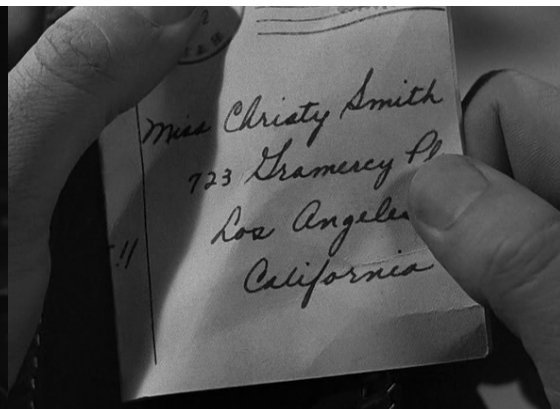 Miss Christy Smith
723 Gramercy Pl
Los Angeles
California
!!